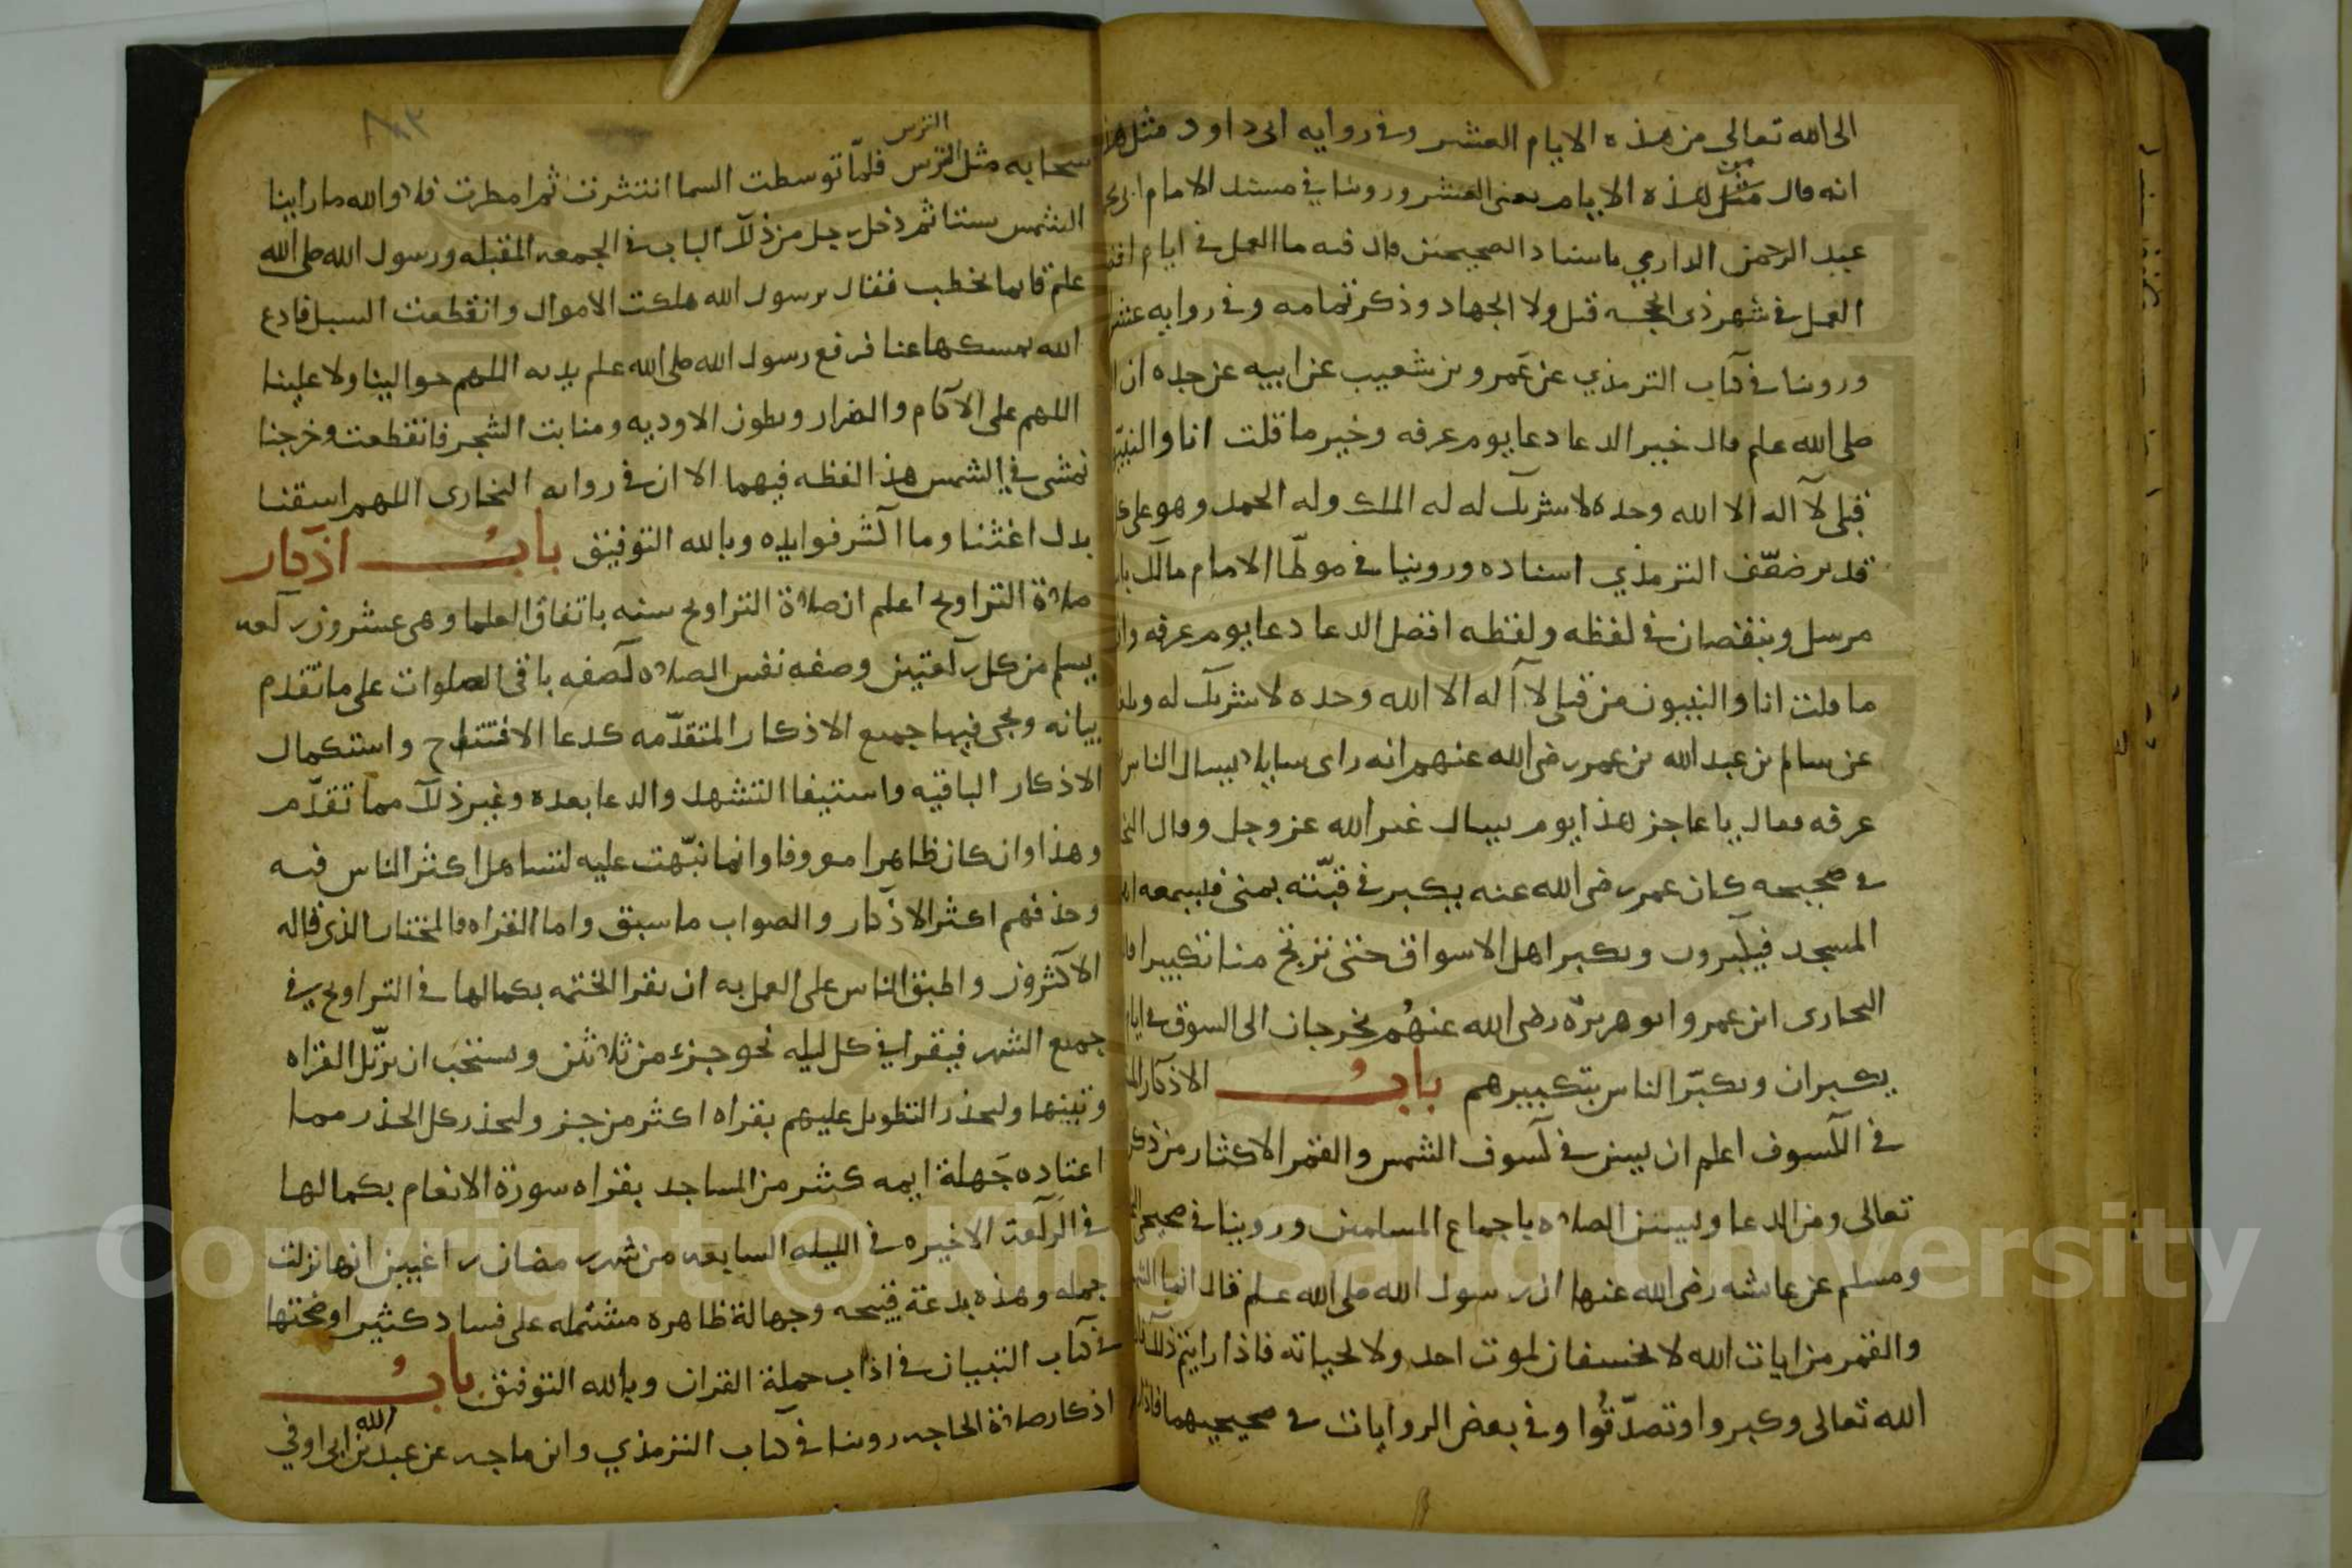 الى الله تعالى من هذه الايام العشر وفى روايه ابى داود مثل هذا
انه قال من مثل هذه الايام يعنى العشر وروينا فى مسند الامام
عبد الرحمن الدارمي باسناد الصحيحين قال فيه ما العمل فى ايام
العمل فى شهر ذى الحجه قيل ولا الجهاد وذكر تمامه وفى روايه عشر
وروينا فى كتاب الترمذي عن عمرو بن شعيب عن ابيه عن جده ان
صلى الله علم قال خير الدعا دعا يوم عرفه وخير ما قلت انا والنبيون
قبلى لا اله الا الله وحده لا شريك له له الملك وله الحمد وهو على كل
قدير ضعّف الترمذي اسناده وروينا فى موطّا الامام مالك
مرسل وبنقصان فى لفظه ولفظه افضل الدعا دعا يوم عرفه
ما قلت انا والنبيون من قبلى لا اله الا الله وحده لا شريك له
عن سالم بن عبد الله بن عمر رضى الله عنهم انه راى سايلا يسال الناس
عرفه فقال يا عاجز هذا يوم يسال غير الله عز وجل وقال
فى صحيحه كان عمر رضى الله عنه يكبر فى قبّته بمنى فيسمعه
المسجد فيكبرون ويكبر اهل الاسواق حتى ترتج منا تكبيرا
البخارى ابن عمر وابو هريرة رضى الله عنهُم يخرجان الى السوق فى
يكبران ويكبّر الناس بتكبيرهم بابُ الاذكار
فى الكسوف اعلم ان يسن فى كسوف الشمس والقمر الاكثار من ذكر
تعالى ومن الدعا وليسن الصلاه باجماع المسلمين وروينا فى صحيحى
ومسلم عن عايشه رضى الله عنها ان رسول الله صلى الله علم قال انما
والقمر من ايات الله لا يخسفان لموت احد ولا لحياته فاذا رايتم ذلك
الله تعالى وكبروا وتصدّقُوا وفى بعض الروايات فى صحيحيهما
الترس
سحابه مثل الترس فلمّا توسطت السما انتشرت ثم امطرت فلا والله ما راينا
الشمس ستا ثم دخل رجل من ذلك الباب فى الجمعه المقبله ورسول الله صلى الله
علم قايما يخطب فقال يرسول الله هلكت الاموال وانقطعت السبل فادع
الله يمسكها عنا فرفع رسول الله صلى الله علم يديه اللهم حوالينا ولا علينا
اللهم على الاكام والضراب وبطون الاوديه ومنابت الشجر فانقطعت وخرجنا
نمشى فى الشمس هذا لفظه فيهما الا ان فى روايه البخارى اللهم اسقنا
بدل اغثنا وما اكثر فوايده وبالله التوفيق بابُ اذكار
صلاة التراويح اعلم ان صلاة التراويح سنه باتفاق العلما وهى عشرون ركعه
يسلم من كل ركعتين وصفه نفس الصلاه كصفه باقى الصلوات على ما تقدم
بيانه ويجى فيها جميع الاذكار المتقدّمه كدعا الافتتاح واستكمال
الاذكار الباقيه واستيفا التشهد والدعا بعده وغير ذلك مما تقدّم
وهذا وان كان ظاهرا معروفا وانما نبّهت عليه لتساهل اكثر الناس فيه
وحذفهم اكثر الاذكار والصواب ما سبق واما القراه فالمختار الذى قاله
الاكثرون واطبق الناس على العمل به ان تقرا الختمه بكمالها فى التراويح فى
جميع الشهر فيقرا فى كل ليله نحو جزء من ثلاثين ويستحب ان يرتّل القراه
وتبينها وليحذر التطويل عليهم بقراه اكثر من جزء وليحذر كل الحذر مما
اعتاده جَهلة ايمه كثير من المساجد بقراه سورة الانعام بكمالها
فى الركعة الاخيره فى الليله السابعه من شهر رمضان راغبين انها نزلت
جمله وهذه بدعة قبيحه وجهالة ظاهره مشتمله على فساد كثير اوضحتها
فى كتاب التبيان فى اداب حملة القران وبالله التوفيق بابُ
اذكار صلاة الحاجه روينا فى كتاب الترمذي وابن ماجه عن عبد الله بن ابى اوفي
Copyright © King Saud University